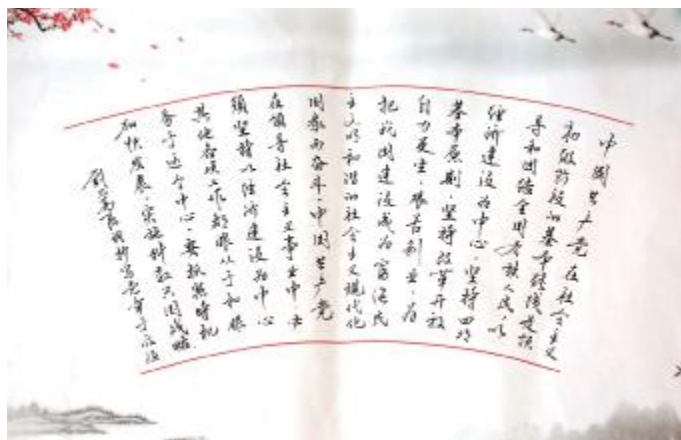 中国共产党在社会主义
初级阶段的基本路线是领
导和团结全国各族人民以
经济建设为中心坚持四项
基本原则坚持改革开放
自力更生艰苦创业为
把我国建设成为富强民
主文明和谐的社会主义现代化
国家而奋斗中国共产党
在领导社会主义事业中必
须坚持以经济建设为中心
其他各项工作都服从于和服
务于这个中心要抓紧时机
加快发展实施科教兴国战略